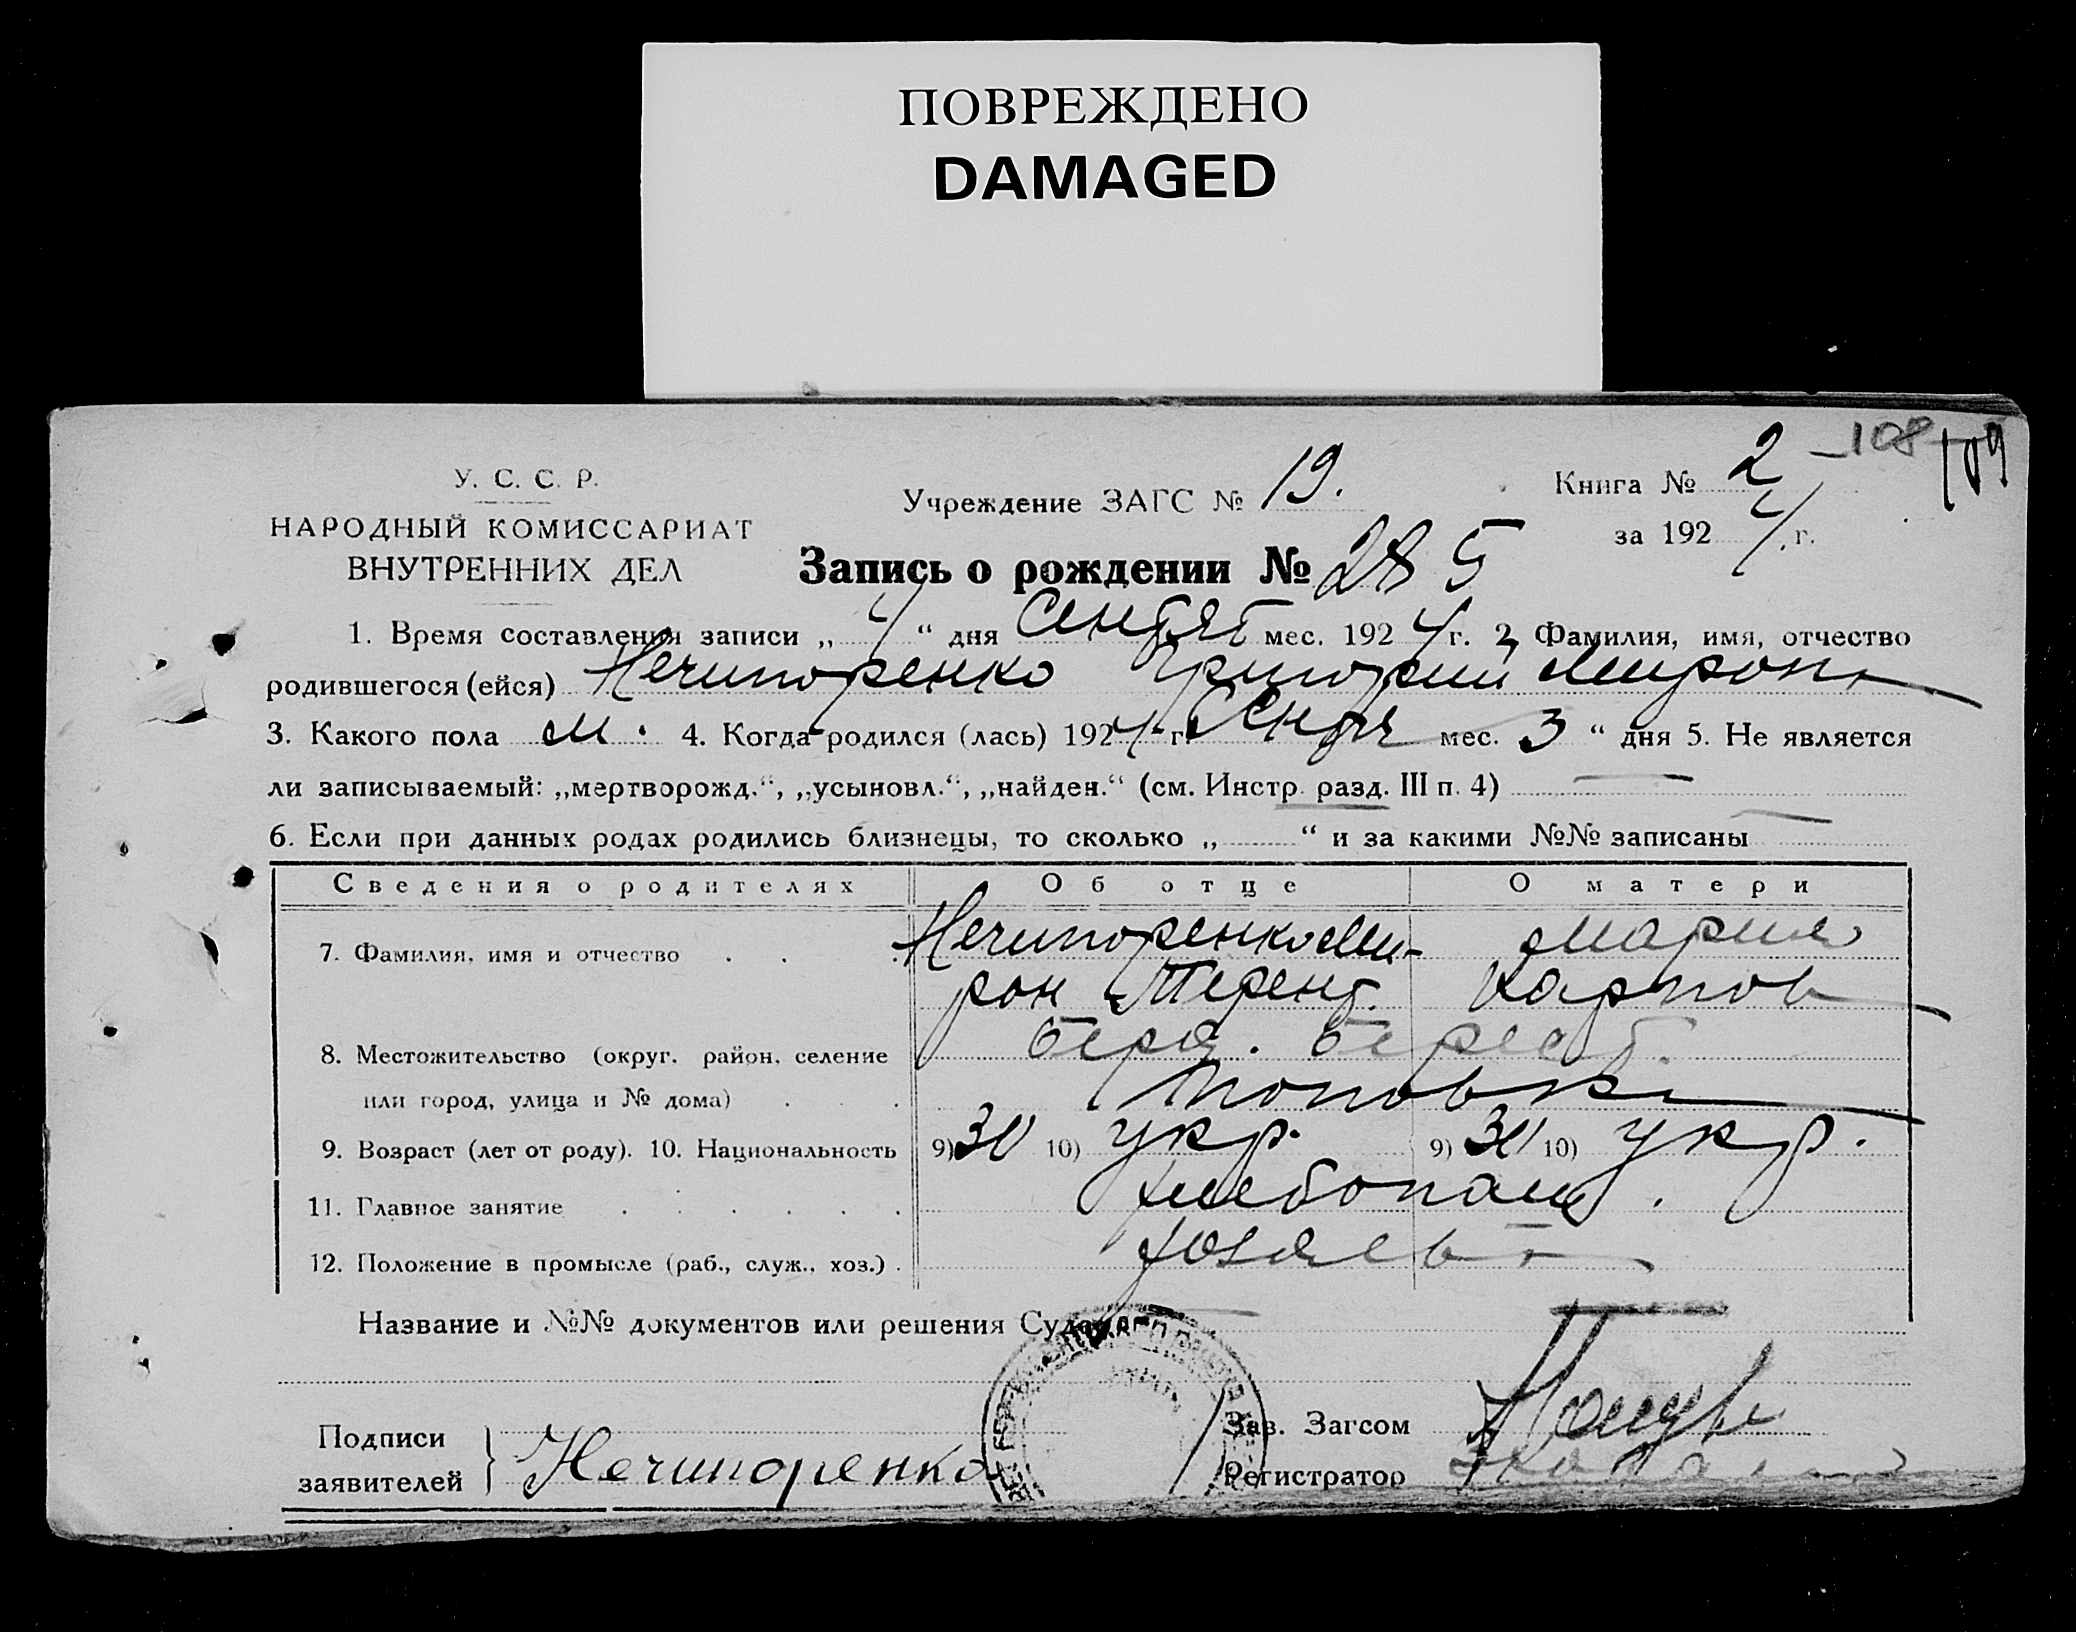 ПОВРЕЖДЕНО
DAMAGED
108 109
У. С. С. Р.
НАРОДНЫЙ КОМИССАРИАТ
ВНУТРЕННИХ ДЕЛ
Учреждение ЗАГС № 19.
Книга № 2
за 1924 г.
Запись о рождении № 285
1. Время составления записи „ 4 “ дня Сентяб мес. 1924 г. 2. Фамилия, имя, отчество
родившегося (ейся) Нечипоренко Григорий Мирон
3. Какого пола м. 4. Когда родился (лась) 1924 г. Сентя мес. 3 “ дня 5. Не является
ли записываемый: „мертворожд.“, „усыновл.“, „найден.“ (см. Инстр. разд. III п. 4)
6. Если при данных родах родились близнецы, то сколько „ “ и за какими №№ записаны
Сведения о родителях Об отце О матери
7. Фамилия, имя и отчество Нечипоренко Ми- Мария
рон Терент. Карпов
8. Местожительство (округ, район, селение Берд.
или город, улица и № дома) Поповка
9. Возраст (лет от роду). 10. Национальность 9) 30 10) укр. 9) 30 10) укр.
11. Главное занятие хлебопаш.
12. Положение в промысле (раб., служ., хоз.)
Название и №№ документов или решения Суда
Подписи
заявителей } Нечипоренко
Зав. Загсом
Регистратор